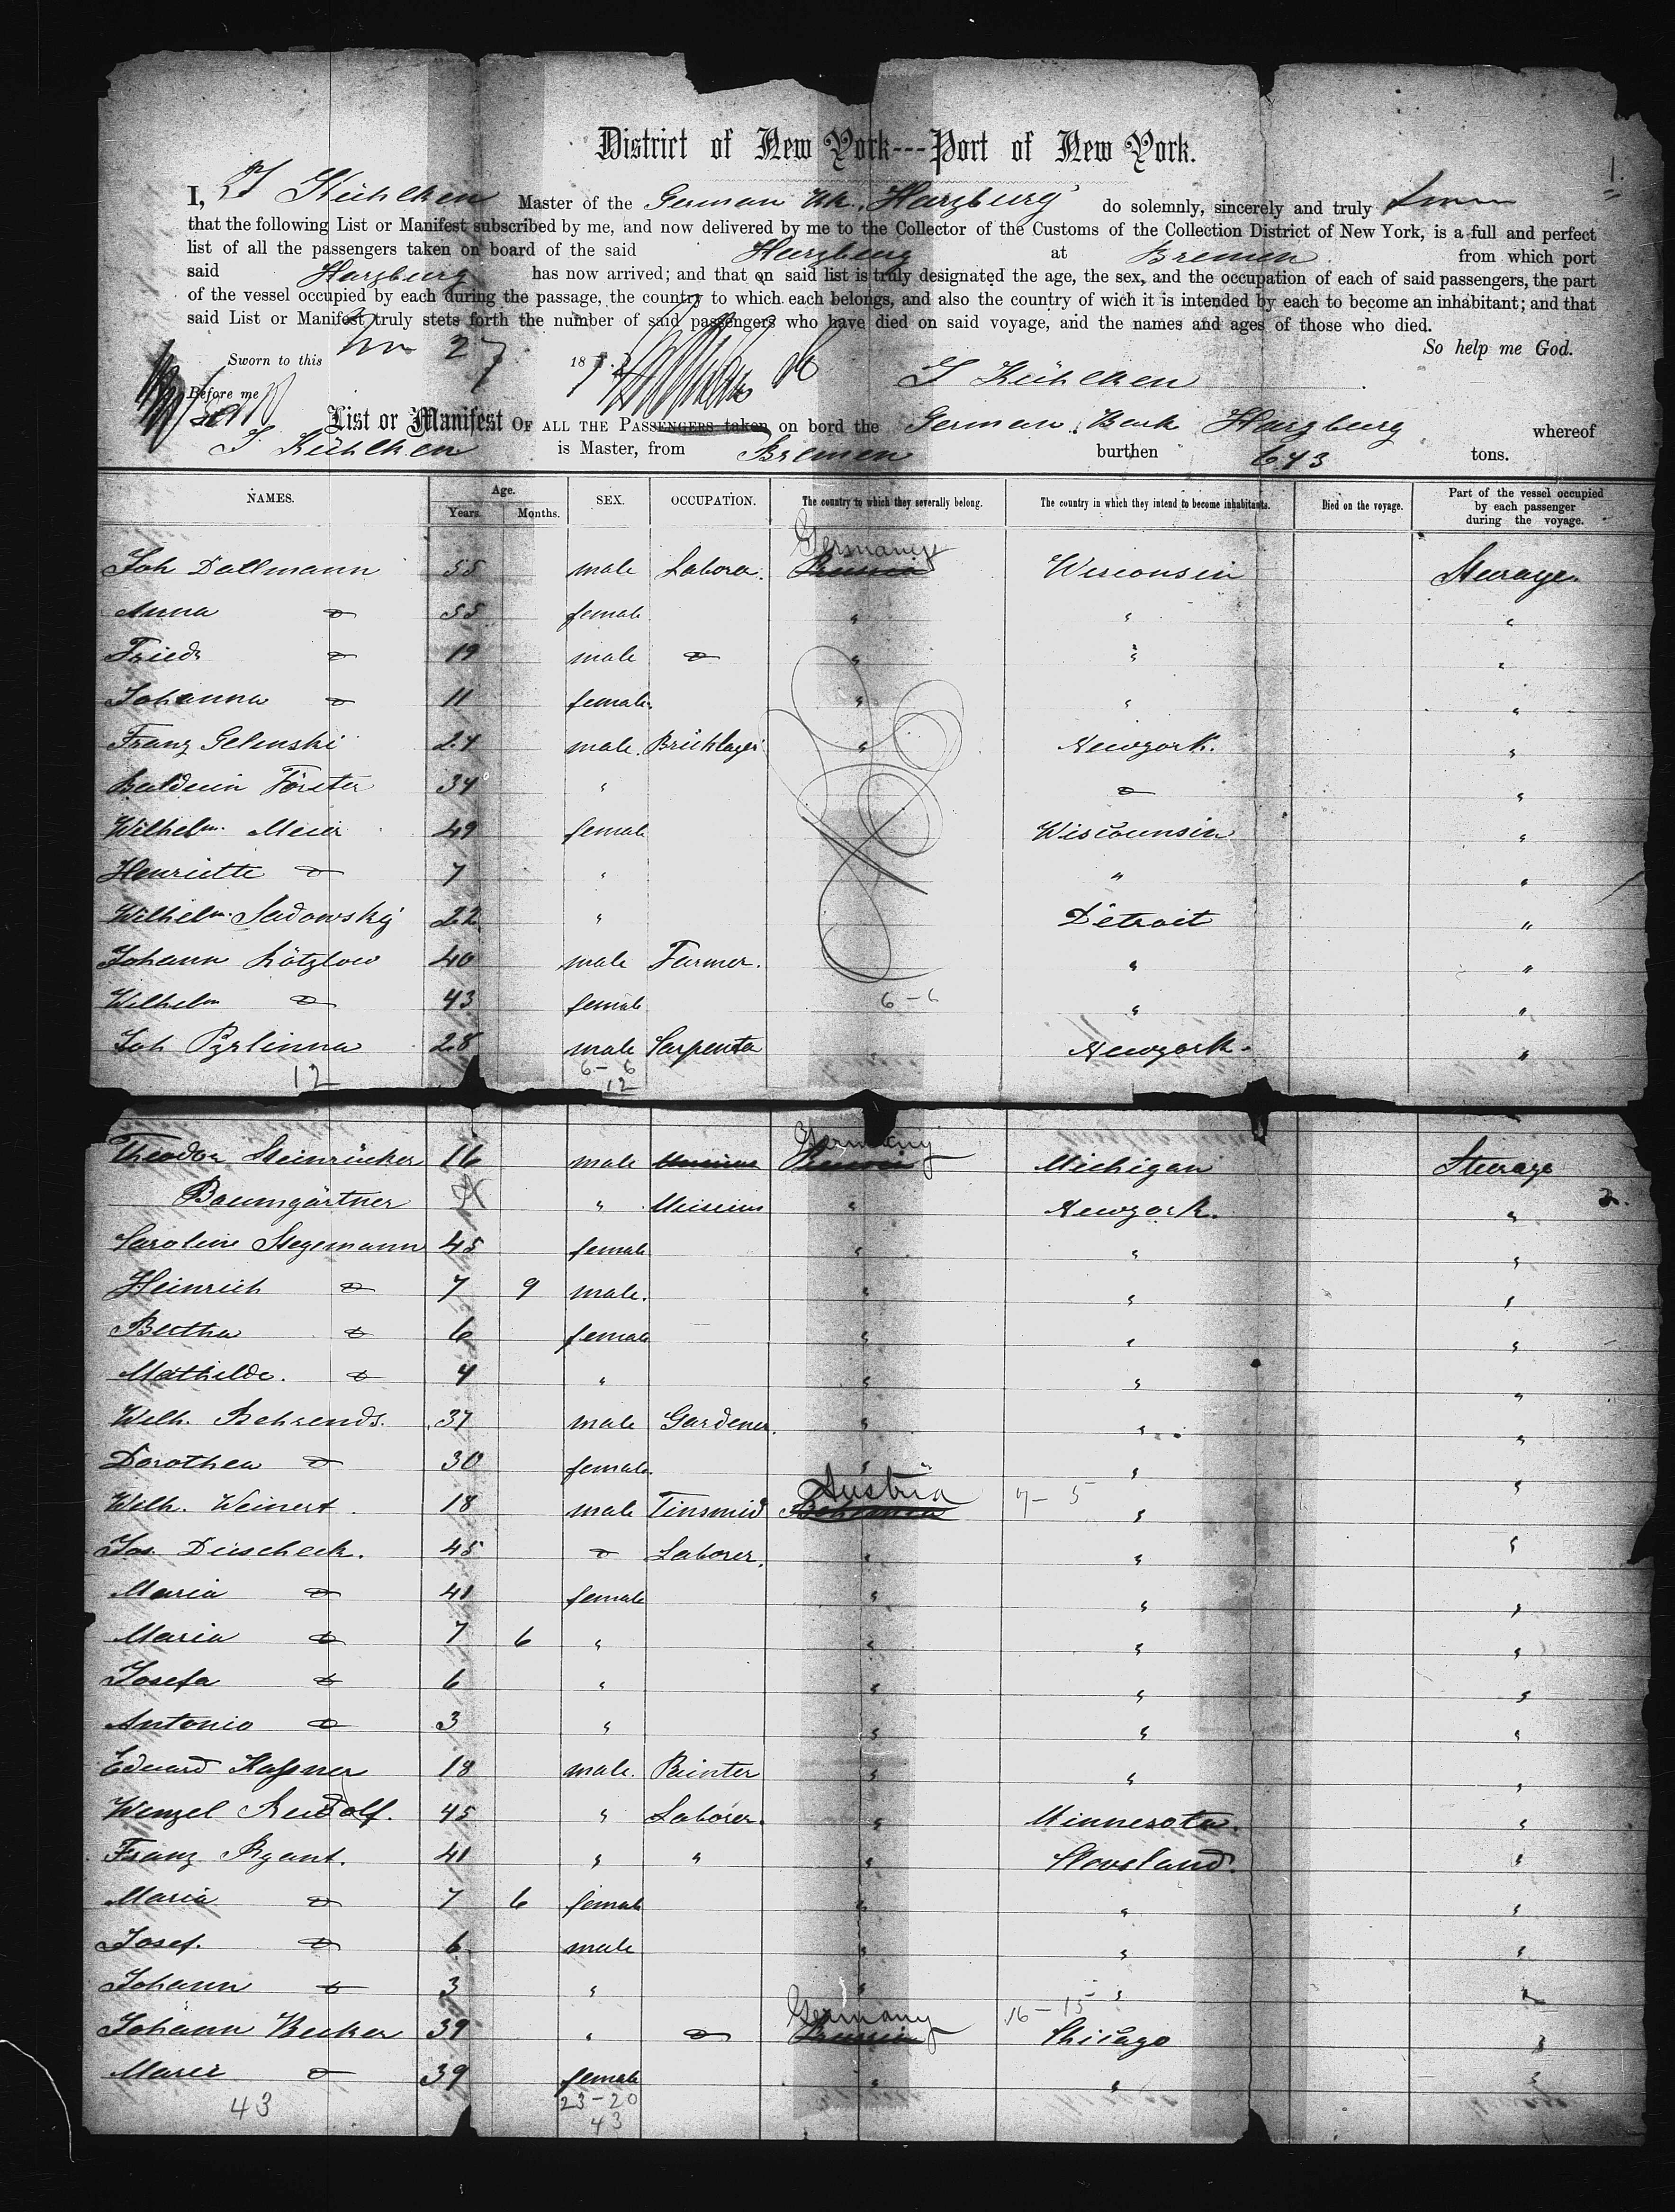 District of New York---Port of New York.
1.
I, J Kühlken Master of the German bk. Harzburg do solemnly, sincerely and truly swear
that the following List or Manifest subscribed by me, and now delivered by me to the Collector of the Customs of the Collection District of New York, is a full and perfect
list of all the passengers taken on board of the said Harzburg at Bremen from which port
said Harzburg has now arrived; and that on said list is truly designated the age, the sex, and the occupation of each of said passengers, the part
of the vessel occupied by each during the passage, the country to which each belongs, and also the country of wich it is intended by each to become an inhabitant; and that
said List or Manifest truly stets forth the number of said passengers who have died on said voyage, and the names and ages of those who died.
So help me God.
Sworn to this 27 187
J Kühlken
Before me
List or Manifest OF ALL THE PASSENGERS taken on bord the German Bark Harzburg whereof
J. Kühlken is Master, from Bremen burthen 643 tons.
NAMES. Age. Years. Months. SEX. OCCUPATION. The country to which they severally belong. The country in which they intend to become inhabitants. Died on the voyage. Part of the vessel occupied by each passenger during the voyage.
Germany
Joh Dallmann 55 male Laborer. Prussia Wisconsin Steerage.
Anna do 55 female " " "
Friedr do 19 male do " " "
Johanna do 11 female. " " "
Franz Gelinski 24 male. Brichlayer " Newyork. "
Balduin Förster 34 " do "
Wilhelm. Meier 49 female Wiscounsin "
Henriette do 7 " " "
Wilhelm. Sadowsky 22 " Detroit "
Johann Kötzlow 40 male Farmer. " "
Wilhelm do 43 female 6-6 " "
Joh Pyrlinna 28 male Carpenter Newyork. "
12 6-6
12
Germany
Theodor Steinrücker 16 male Prussia Michigan Steerage
2.
Baumgärtner " " Newyork. "
Caroline Stegemann 45 female " " "
Heinrich do 7 9 male. " " "
Bertha do 6 female " " "
Mathilde. do 4 " " " "
Wilh. Behrends. 37 male Gardener. " " "
Dorothea do 30 female. " " "
Austria
Wilh. Weinert. 18 male Tinsmid Bohemia 7-5 " "
Jos. Diescheck. 45 do Laborer. " " "
Maria do 41 female " " "
Maria do 7 6 " " " "
Josefa do 6 " " " "
Antonio do 3 " " " "
Eduard Kassner 18 male. Peinter " " "
Wenzel Reudolf. 45 " Laborer. " Minnesota. "
Franz Ryant. 41 " " " Cleveland. "
Maria do 7 6 female " " "
Josef. do 6 male " " "
Johann do 3 " " " "
Germany 16-15
Johann Becker 39 " do Prussia Chicago "
Marie do 39 female " " "
43 23-20
43